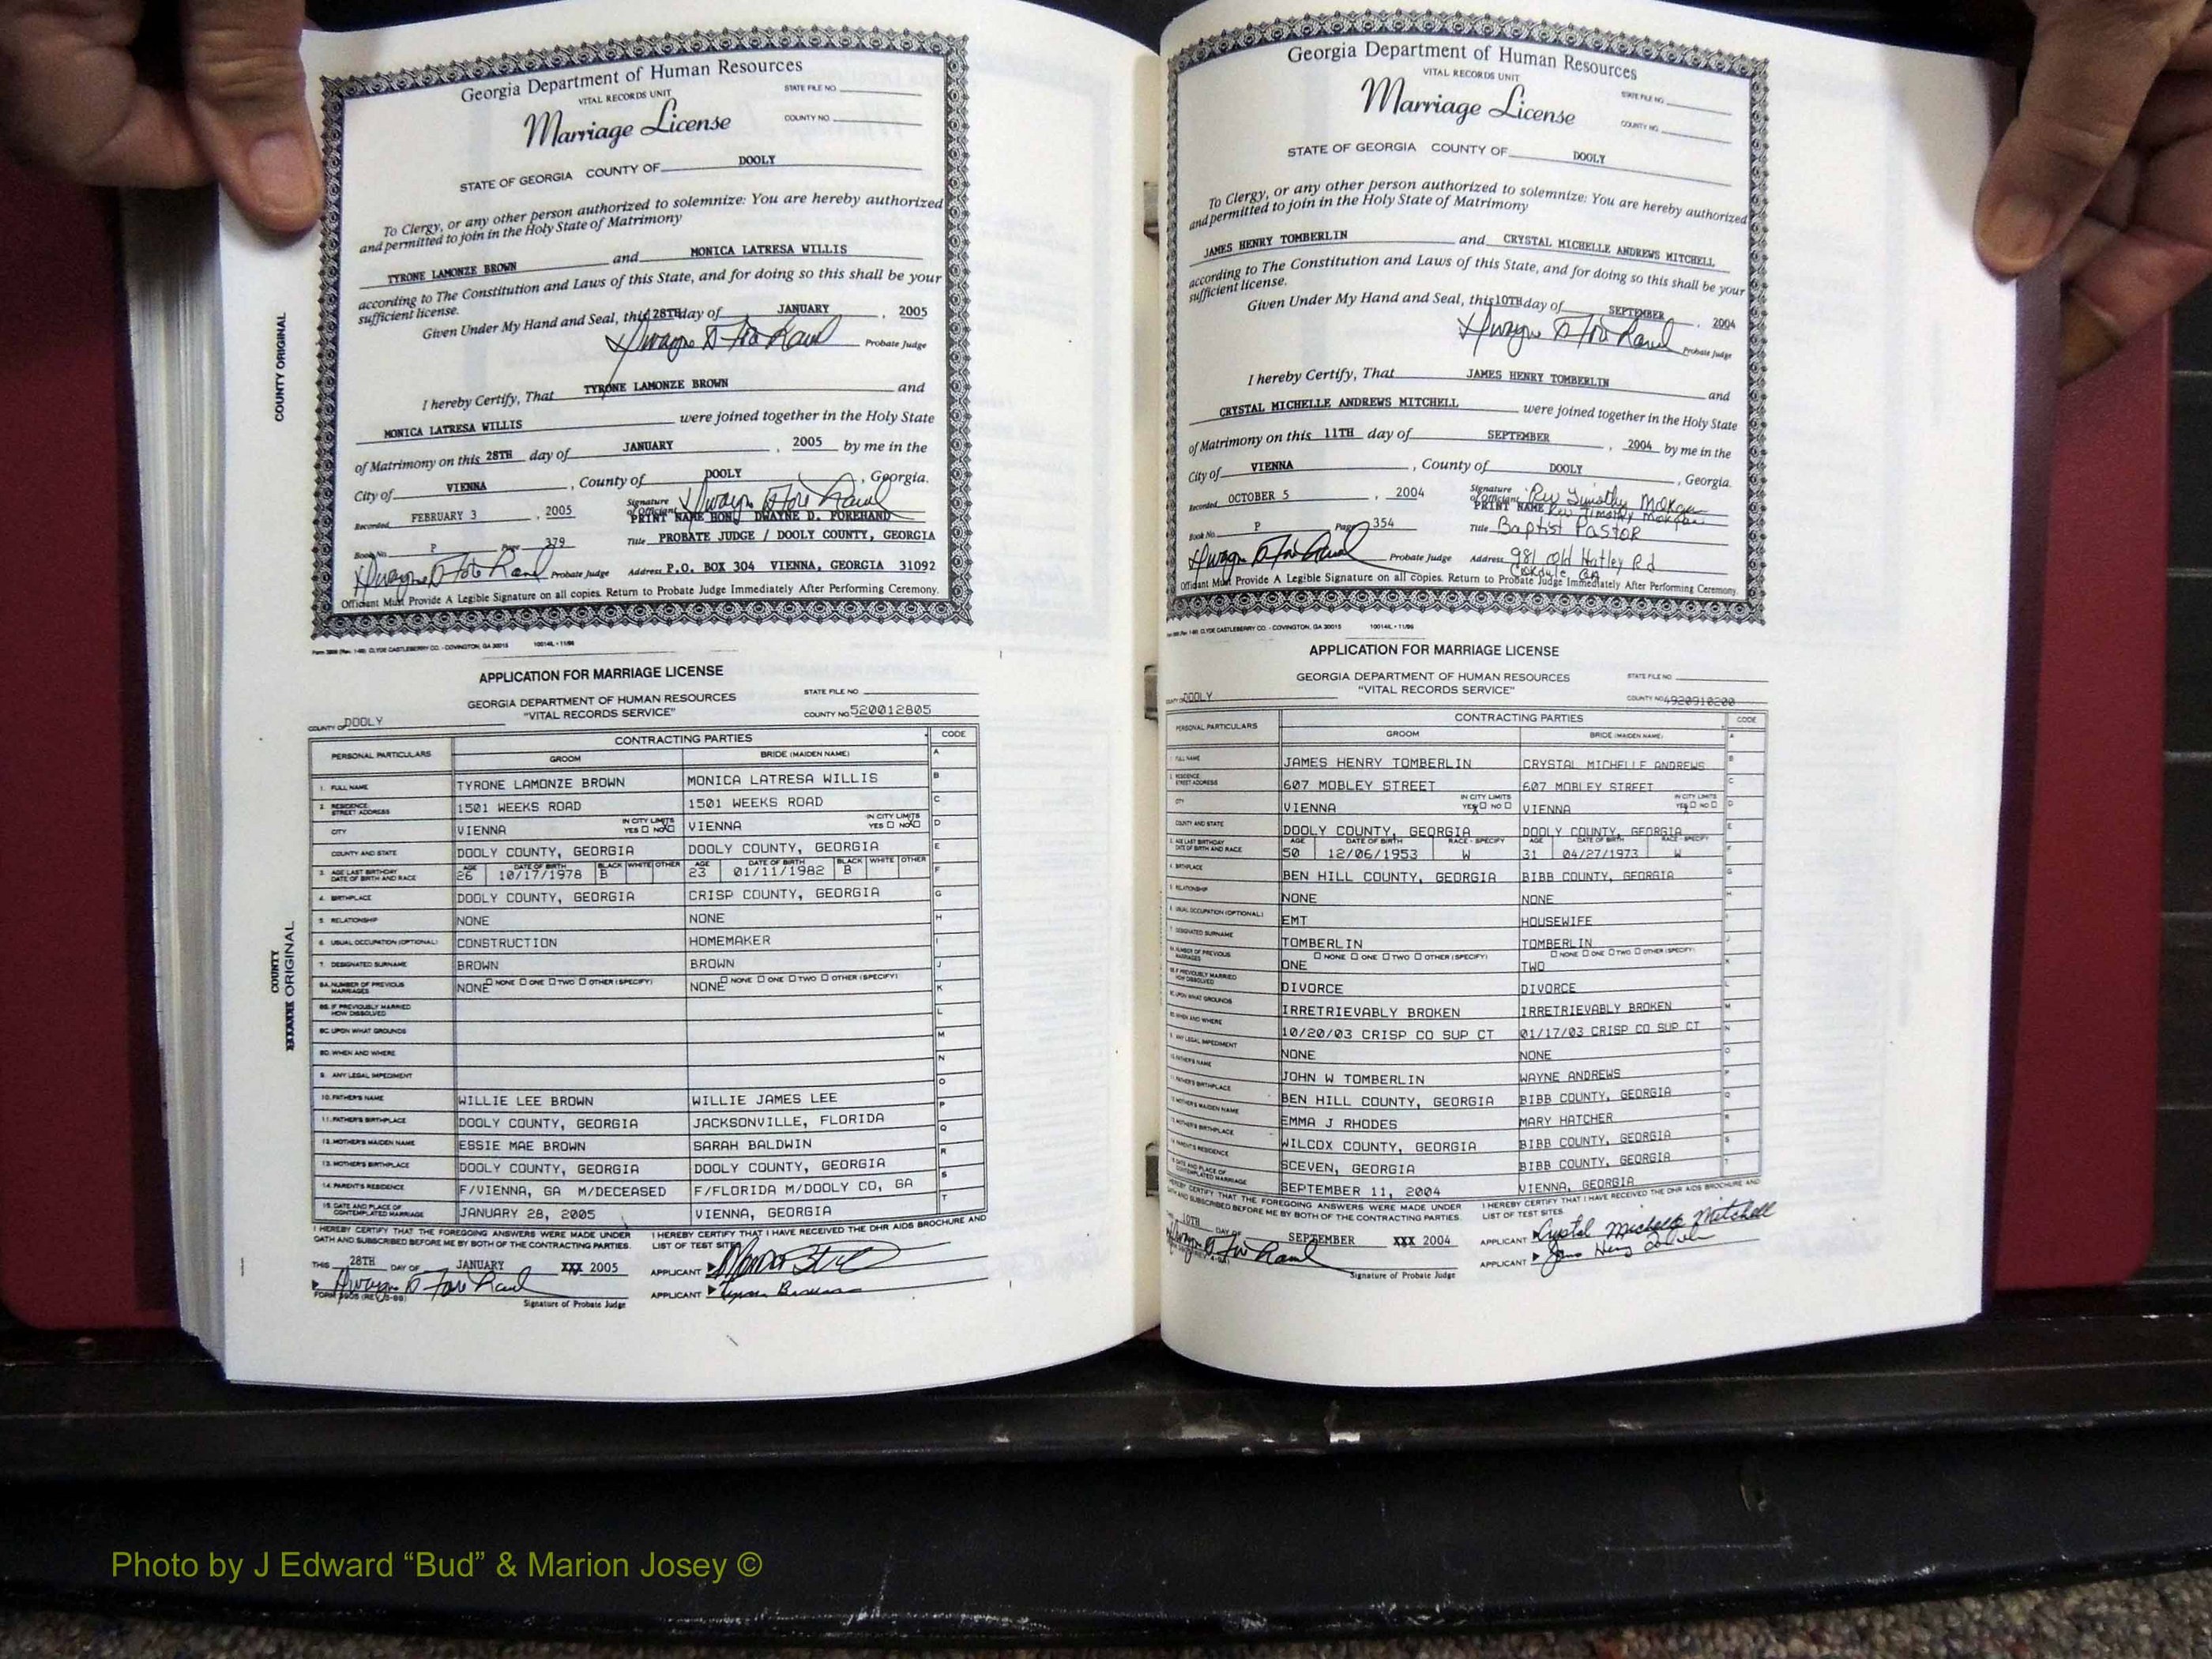 COUNTY ORIGINAL
Georgia Department of Human Resources
VITAL RECORDS UNIT
STATE FILE NO.
Marriage License
COUNTY NO.
STATE OF GEORGIA COUNTY OF DOOLY
To Clergy, or any other person authorized to solemnize: You are hereby authorized
and permitted to join in the Holy State of Matrimony
TYRONE LAMONZE BROWN and MONICA LATRESA WILLIS
according to The Constitution and Laws of this State, and for doing so this shall be your
sufficient license.
Given Under My Hand and Seal, this 28TH day of JANUARY , 2005
Probate Judge
I hereby Certify, That TYRONE LAMONZE BROWN and
MONICA LATRESA WILLIS were joined together in the Holy State
of Matrimony on this 28TH day of JANUARY , 2005 by me in the
City of VIENNA , County of DOOLY , Georgia.
Recorded FEBRUARY 3 , 2005 Signature of Officiant
PRINT NAME HON. DWAYNE D. FOREHAND
Title PROBATE JUDGE / DOOLY COUNTY, GEORGIA
Book No. P Page 379
Probate Judge Address P.O. BOX 304 VIENNA, GEORGIA 31092
Officiant Must Provide A Legible Signature on all copies. Return to Probate Judge Immediately After Performing Ceremony.
Form 3908 (Rev. 1-88) CLYDE CASTLEBERRY CO. - COVINGTON, GA 30015 10014L • 11/96
APPLICATION FOR MARRIAGE LICENSE
GEORGIA DEPARTMENT OF HUMAN RESOURCES
"VITAL RECORDS SERVICE"
STATE FILE NO
COUNTY NO. 520012805
COUNTY OF DOOLY
COUNTY
ORIGINAL
PERSONAL PARTICULARS CONTRACTING PARTIES CODE
GROOM BRIDE (MAIDEN NAME) A
1. FULL NAME TYRONE LAMONZE BROWN MONICA LATRESA WILLIS B
2. RESIDENCE: STREET ADDRESS 1501 WEEKS ROAD 1501 WEEKS ROAD C
CITY VIENNA IN CITY LIMITS YES NO VIENNA IN CITY LIMITS YES NO D
COUNTY AND STATE DOOLY COUNTY, GEORGIA DOOLY COUNTY, GEORGIA E
3. AGE LAST BIRTHDAY DATE OF BIRTH AND RACE AGE 26 DATE OF BIRTH 10/17/1978 BLACK B WHITE OTHER AGE 23 DATE OF BIRTH 01/11/1982 BLACK B WHITE OTHER F
4. BIRTHPLACE DOOLY COUNTY, GEORGIA CRISP COUNTY, GEORGIA G
5. RELATIONSHIP NONE NONE H
6. USUAL OCCUPATION (OPTIONAL) CONSTRUCTION HOMEMAKER I
7. DESIGNATED SURNAME BROWN BROWN J
8A. NUMBER OF PREVIOUS MARRIAGES NONE □ NONE □ ONE □ TWO □ OTHER (SPECIFY) NONE □ NONE □ ONE □ TWO □ OTHER (SPECIFY) K
8B. IF PREVIOUSLY MARRIED HOW DISSOLVED L
8C. UPON WHAT GROUNDS M
8D. WHEN AND WHERE N
9. ANY LEGAL IMPEDIMENT O
10. FATHER'S NAME WILLIE LEE BROWN WILLIE JAMES LEE P
11. FATHER'S BIRTHPLACE DOOLY COUNTY, GEORGIA JACKSONVILLE, FLORIDA Q
12. MOTHER'S MAIDEN NAME ESSIE MAE BROWN SARAH BALDWIN R
13. MOTHER'S BIRTHPLACE DOOLY COUNTY, GEORGIA DOOLY COUNTY, GEORGIA S
14. PARENT'S RESIDENCE F/VIENNA, GA M/DECEASED F/FLORIDA M/DOOLY CO, GA T
15. DATE AND PLACE OF CONTEMPLATED MARRIAGE JANUARY 28, 2005 VIENNA, GEORGIA
I HEREBY CERTIFY THAT THE FOREGOING ANSWERS WERE MADE UNDER
OATH AND SUBSCRIBED BEFORE ME BY BOTH OF THE CONTRACTING PARTIES.
I HEREBY CERTIFY THAT I HAVE RECEIVED THE DHR AIDS BROCHURE AND
LIST OF TEST SITES.
THIS 28TH DAY OF JANUARY XXX 2005
APPLICANT
APPLICANT
Signature of Probate Judge
Georgia Department of Human Resources
VITAL RECORDS UNIT
STATE FILE NO.
Marriage License
COUNTY NO.
STATE OF GEORGIA COUNTY OF DOOLY
To Clergy, or any other person authorized to solemnize: You are hereby authorized
and permitted to join in the Holy State of Matrimony
JAMES HENRY TOMBERLIN and CRYSTAL MICHELLE ANDREWS MITCHELL
according to The Constitution and Laws of this State, and for doing so this shall be your
sufficient license.
Given Under My Hand and Seal, this 10TH day of SEPTEMBER , 2004
Probate Judge
I hereby Certify, That JAMES HENRY TOMBERLIN and
CRYSTAL MICHELLE ANDREWS MITCHELL were joined together in the Holy State
of Matrimony on this 11TH day of SEPTEMBER , 2004 by me in the
City of VIENNA , County of DOOLY , Georgia.
Recorded OCTOBER 5 , 2004 Signature of Officiant Rev Timothy
PRINT NAME Rev Timothy
Book No. P Page 354 Title Baptist Pastor
Probate Judge Address 981 Old Hatley Rd
Cordele, GA
Officiant Must Provide A Legible Signature on all copies. Return to Probate Judge Immediately After Performing Ceremony.
CLYDE CASTLEBERRY CO. - COVINGTON, GA 30015 10014L • 11/96
APPLICATION FOR MARRIAGE LICENSE
GEORGIA DEPARTMENT OF HUMAN RESOURCES
"VITAL RECORDS SERVICE"
STATE FILE NO
COUNTY NO. 4920910200
COUNTY OF DOOLY
PERSONAL PARTICULARS CONTRACTING PARTIES CODE
GROOM BRIDE (MAIDEN NAME) A
1. FULL NAME JAMES HENRY TOMBERLIN CRYSTAL MICHELLE ANDREWS B
2. RESIDENCE: STREET ADDRESS 607 MOBLEY STREET 607 MOBLEY STREET C
CITY VIENNA IN CITY LIMITS YES NO □ VIENNA IN CITY LIMITS YES NO □ D
COUNTY AND STATE DOOLY COUNTY, GEORGIA DOOLY COUNTY, GEORGIA E
3. AGE LAST BIRTHDAY DATE OF BIRTH AND RACE AGE 50 DATE OF BIRTH 12/06/1953 RACE - SPECIFY W AGE 31 DATE OF BIRTH 04/27/1973 RACE - SPECIFY W F
4. BIRTHPLACE BEN HILL COUNTY, GEORGIA BIBB COUNTY, GEORGIA G
5. RELATIONSHIP NONE NONE H
6. USUAL OCCUPATION (OPTIONAL) EMT HOUSEWIFE I
7. DESIGNATED SURNAME TOMBERLIN TOMBERLIN J
8A. NUMBER OF PREVIOUS MARRIAGES ONE □ NONE □ ONE □ TWO □ OTHER (SPECIFY) TWO □ NONE □ ONE □ TWO □ OTHER (SPECIFY) K
8B. IF PREVIOUSLY MARRIED HOW DISSOLVED DIVORCE DIVORCE L
8C. UPON WHAT GROUNDS IRRETRIEVABLY BROKEN IRRETRIEVABLY BROKEN M
8D. WHEN AND WHERE 10/20/03 CRISP CO SUP CT 01/17/03 CRISP CO SUP CT N
9. ANY LEGAL IMPEDIMENT NONE NONE O
10. FATHER'S NAME JOHN W TOMBERLIN WAYNE ANDREWS P
11. FATHER'S BIRTHPLACE BEN HILL COUNTY, GEORGIA BIBB COUNTY, GEORGIA Q
12. MOTHER'S MAIDEN NAME EMMA J RHODES MARY HATCHER R
13. MOTHER'S BIRTHPLACE WILCOX COUNTY, GEORGIA BIBB COUNTY, GEORGIA S
14. PARENT'S RESIDENCE SCEVEN, GEORGIA BIBB COUNTY, GEORGIA T
15. DATE AND PLACE OF CONTEMPLATED MARRIAGE SEPTEMBER 11, 2004 VIENNA, GEORGIA
I HEREBY CERTIFY THAT THE FOREGOING ANSWERS WERE MADE UNDER
OATH AND SUBSCRIBED BEFORE ME BY BOTH OF THE CONTRACTING PARTIES.
I HEREBY CERTIFY THAT I HAVE RECEIVED THE DHR AIDS BROCHURE AND
LIST OF TEST SITES.
THIS 10TH DAY OF SEPTEMBER XXX 2004
APPLICANT Crystal Michelle Mitchell
APPLICANT James Henry
Signature of Probate Judge
Photo by J Edward “Bud” & Marion Josey ©